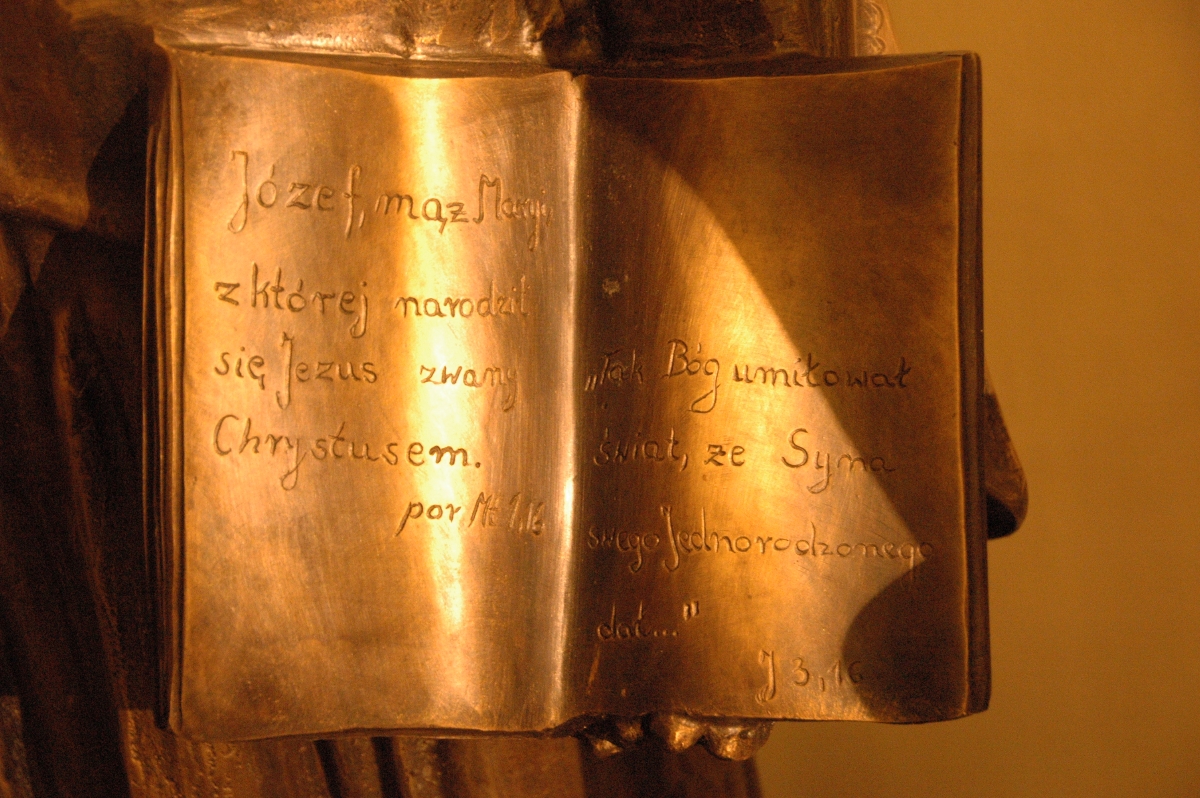 Józef, mąż Maryi,
z której narodził
się Jezus zwany
Chrystusem.
por Mt 1,16
„Tak Bóg umiłował
świat, że Syna
swego Jednorodzonego
dał..."
J 3,16